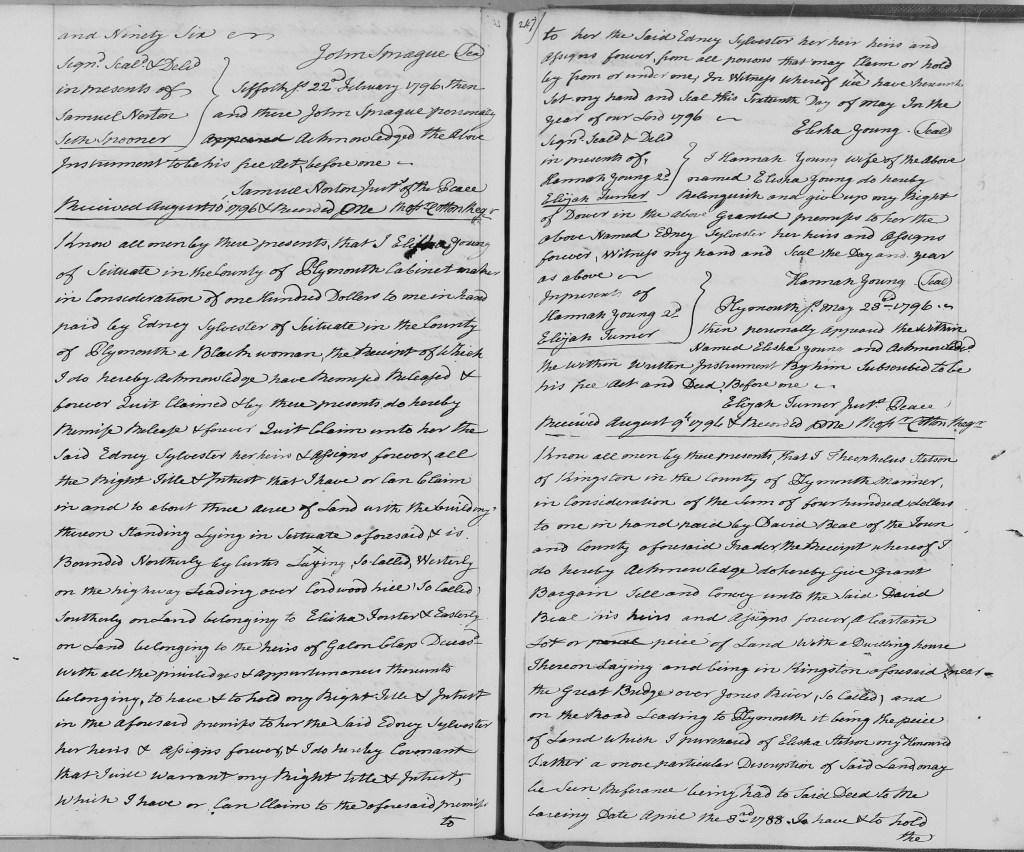 and Ninety Six
John Sprague (Seal)
Sign.d Seal.d & Del.d
in presents of
Samuel Norton
Seth Spooner
Suffolk Ss 22nd February 1796, then
and there John Sprague personally
appeared Acknowledged the above
Instrument to be his free Act, before me
Samuel Norton Just. of the Peace
Received August 1796 & Recorded One Ross.r Cotton Reg.r
Know all men by these presents, that I Elisha Young
of Scituate in the County of Plymouth Cabinet maker
in Consideration of one Hundred Dollars to me in hand
paid by Edney Sylvester of Scituate in the County
of Plymouth a Black woman, the Receipt of Which
I do hereby Acknowledge have Remised Released &
forever Quit Claimed & by these presents do hereby
Remise Release & forever Quit Claim unto her the
Said Edney Sylvester her heirs & Assigns forever, all
the Right Title & Intrust that I have or Can Claim
in and to about three acres of Land with the building
thereon Standing Lying in Scituate aforesaid & is
Bounded Northerly by Curtis Laying So Called, Westerly
on the highway Leading over Cordwood hill So Called,
Southerly on Land belonging to Elisha Foster & Easterly
on Land belonging to the heirs of Galon Clap Deceasd
With all the priviledges & appurtenances thereunto
belonging, to have & to hold my Right Title & Intrust
in the aforesaid premises to her the Said Edney Sylvester
her heirs & Assigns forever, & I do hereby Covenant
that I will Warrant my Right title & Intrust,
Which I have or Can Claim to the aforesaid premises
to
247
to her the Said Edney Sylvester her heir heirs and
Assigns forever, from all persons that may Claim or hold
by from or under me; In Witness whereof we have hereunto
Set my hand and Seal this Sixteenth Day of May In the
year of our Lord 1796
Elisha Young. (Seal)
Sign.d Seal.d & Deld
in presents of,
Hannah Young 2d
Elijah Turner
I Hannah Young wife of the Above
named Elisha Young do hereby
Relinquish and give up my Right
of Dower in the above Granted premises to her the
above Named Edney Sylvester her heirs and Assigns
forever, Witness my hand and Seal the Day and year
as above
Hannah Young (Seal)
In presents of
Hannah Young 2d
Elijah Turner
Plymouth Ss. May 23rd 1796
then personally Appeared the Within
Named Elisha Young and Acknowledd.
the within Written Instrument By him Subscribed to be
his free Act and Deed, Before me
Elijah Turner Just. Peace
Received August 9th 1796 & Recorded One Ross.r Cotton Reg.r
Know all men by these presents, that I Theophelus Stetson
of Kingston in the County of Plymouth Mariner,
in Consideration of the Sum of four hundred Dollars
to me in hand paid by David Beal of the Town
and County aforesaid Trader, the Receipt whereof I
do hereby Acknowledge do hereby Give Grant
Bargain Sell and Convey unto the Said David
Beal his heirs and Assigns forever, a Certain
Lot or parcel peice of Land With a Dwelling house
Thereon Laying and being in Kingston aforesaid, near
the Great Bridge over Jones River, So Called, and
on the Road Leading to Plymouth it being the peice
of Land which I purchased of Elisha Stetson my Honoured
Father a more particular Description of Said Land may
be Seen Referance being had to Said Deed to me
bareing Date April the 3rd 1788. To have & to hold
the